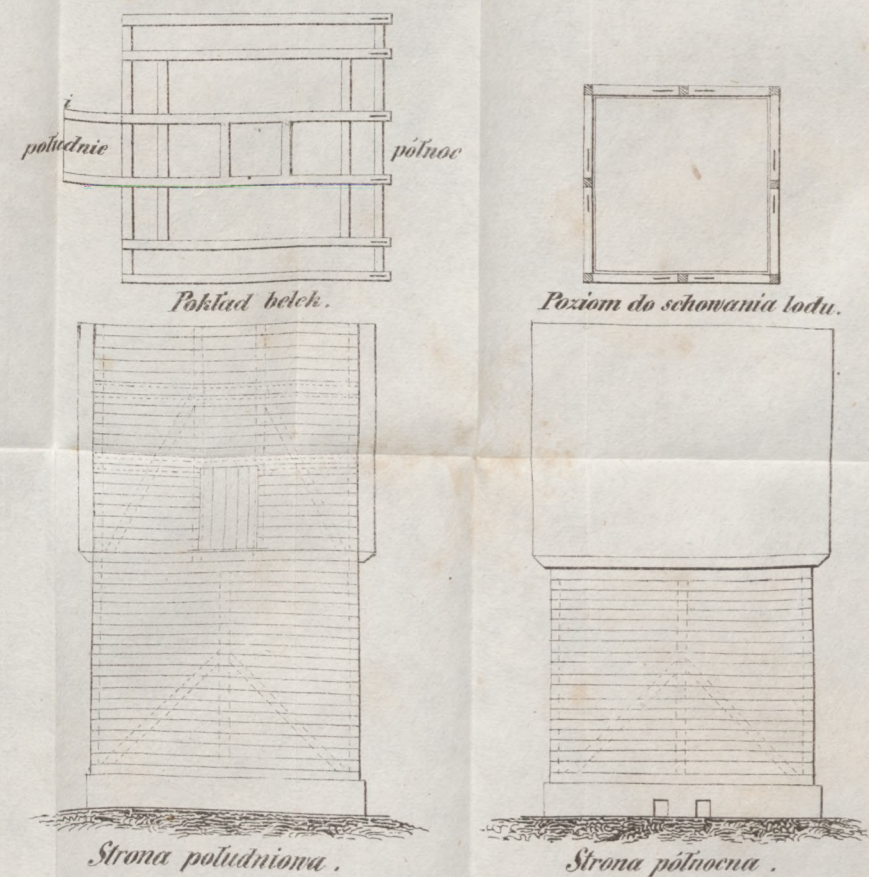 i
południe
północ
Pokład belek.
Poziom do schowania lodu.
Strona południowa.
Strona północna.